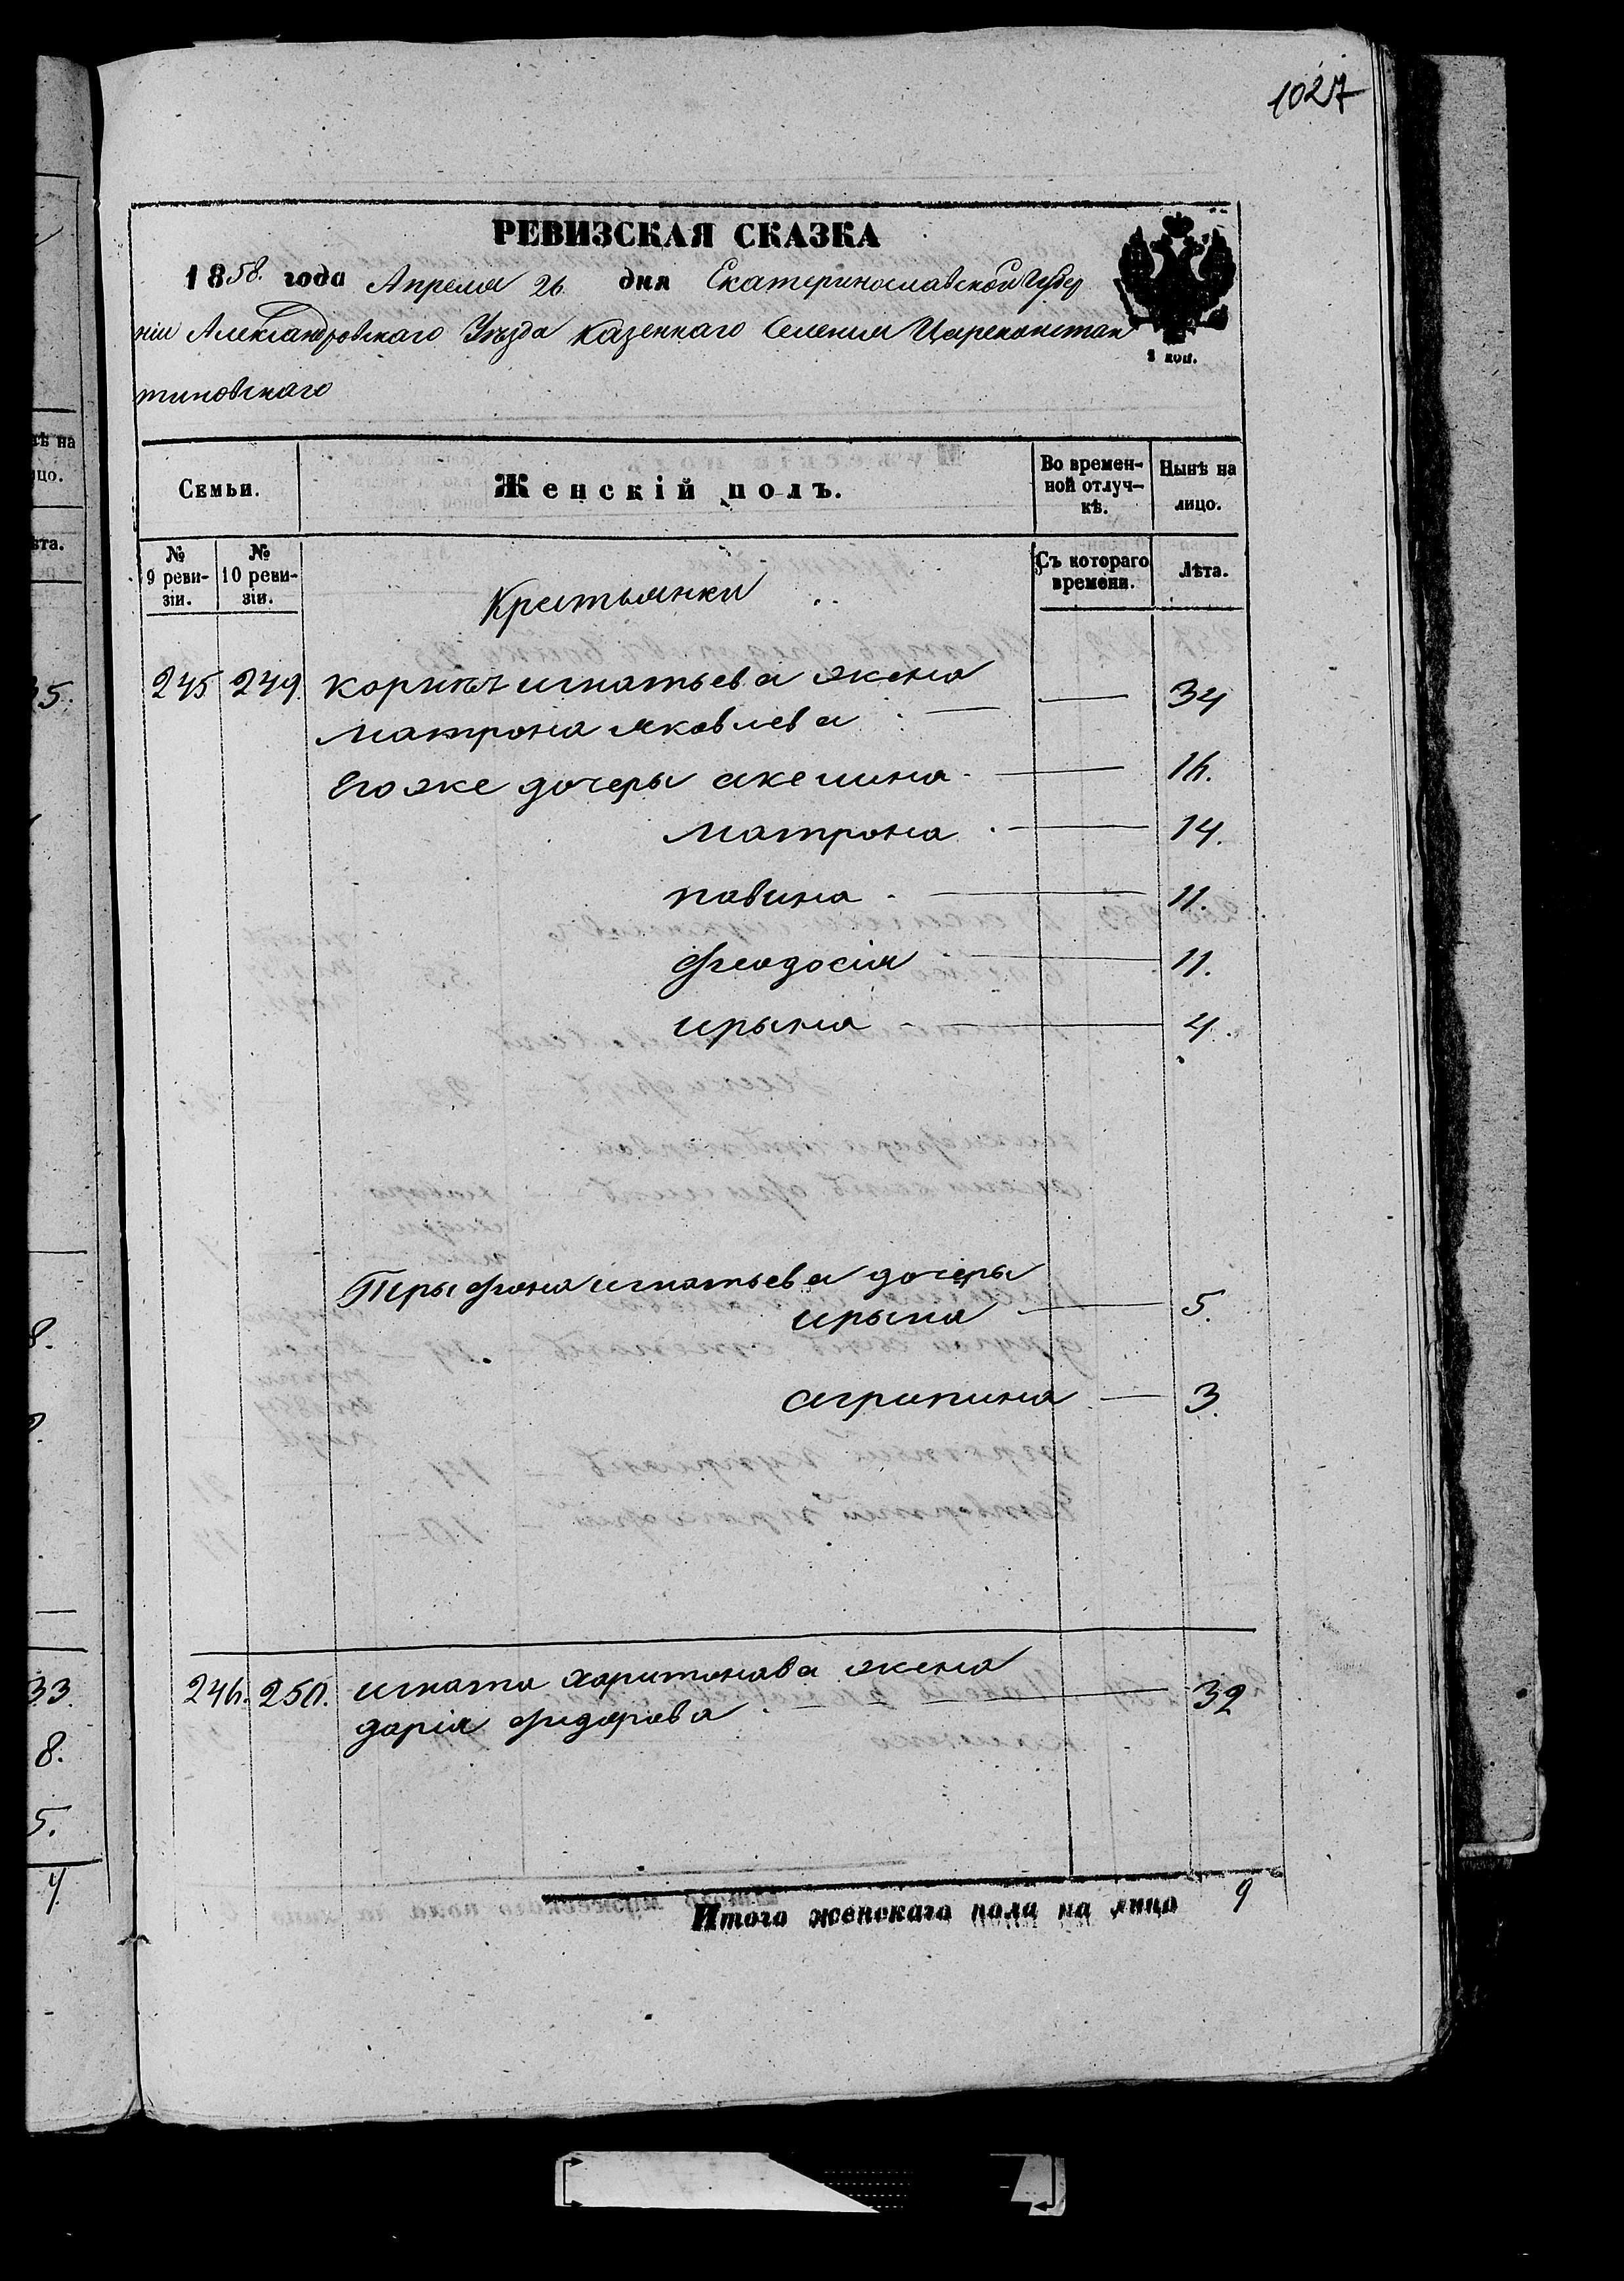 1027
РЕВИЗСКАЯ СКАЗКА
1858. года Апреля 26 дня Екатеринославской Губер
ніи Александровскаго Уѣзда казеннаго Селенія Цареконстан
тиновскаго
1 коп.
Семьи.
Женскій полъ.
Во времен-
ной отлуч-
кѣ.
Нынѣ на
лицо.
№
9 реви-
зіи.
№
10 реви-
зіи.
Съ котораго
времени.
Лѣта.
Крестьянки
245 249. игнатьева жена
матрона яковлева — 34
Его же дочеры акелина — 16.
матрона — 14.
павина — 11.
феодосія — 11.
ирына — 4.
Трыфона игнатьева дочеры
ирына — 5.
агрипина — 3.
246. 250. игната харитонава жена
дарія фидорова — 32
Итого женскаго пола на лицо 9
ѣ на
цо.
ѣта.
5.
8.
33
8.
5.
4